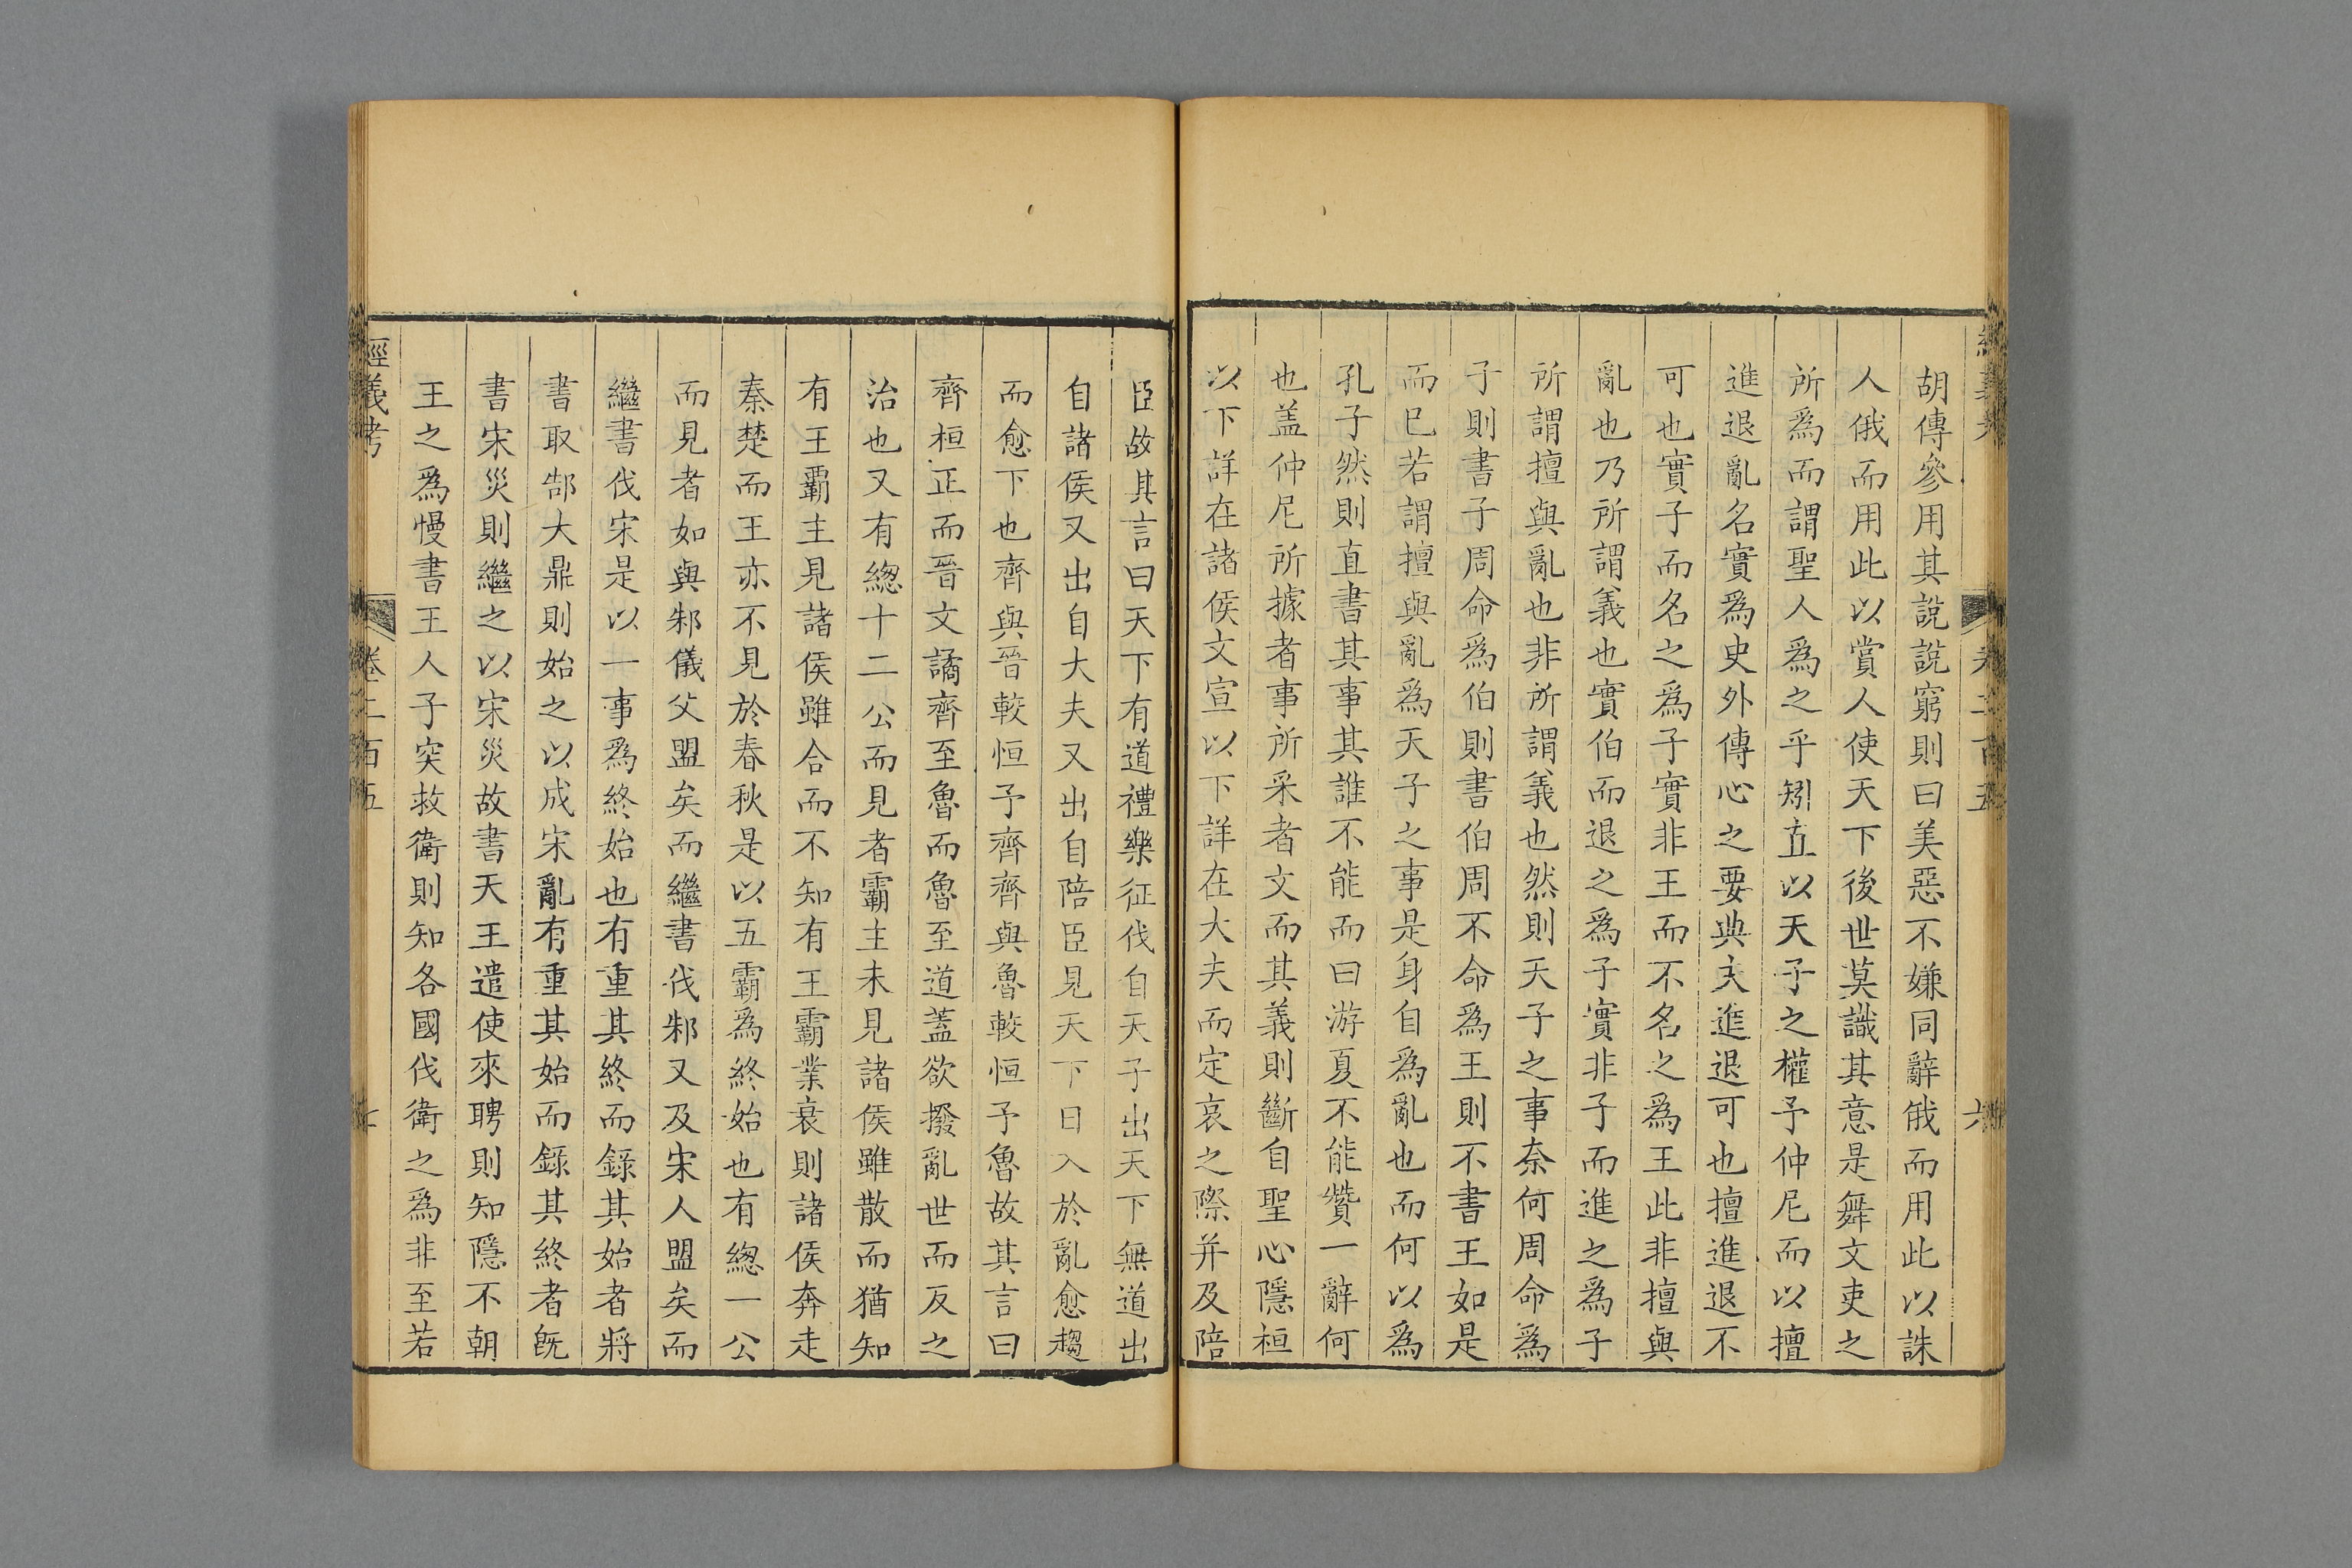 胡傳參用其說說窮則曰美惡不嫌同辭俄而用此以誅
人俄而用此以賞人使天下後世莫識其意是舞文吏之
所爲而謂聖人爲之乎矧直以天子之權予仲尼而以擅
進退亂名實爲史外傳心之要典夫進退可也擅進退不
可也實子而名之爲子實非王而不名之爲王此非擅與
亂也乃所謂義也實伯而退之爲子實非子而進之爲子
所謂擅與亂也非所謂義也然則天子之事奈何周命爲
子則書子周命爲伯則書伯周不命爲王則不書王如是
而已若謂擅與亂爲天子之事是身自爲亂也而何以爲
孔子然則直書其事其誰不能而曰游夏不能贊一辭何
也盖仲尼所據者事所采者文而其義則斷自聖心隱桓
以下詳在諸侯文宣以下詳在大夫而定哀之際并及陪
臣故其言曰天下有道禮樂征伐自天子出天下無道出
自諸侯又出自大夫又出自陪臣見天下日入於亂愈趨
而愈下也齊與晉較恒予齊齊與魯較恒予魯故其言曰
齊桓正而晉文譎齊至魯而魯至道蓋欲撥亂世而反之
治也又有總十二公而見者霸主未見諸侯雖散而猶知
有王霸主見諸侯雖合而不知有王霸業衰則諸侯奔走
秦楚而王亦不見於春秋是以五霸爲終始也有總一公
而見者如與邾儀父盟矣而繼書伐邾又及宋人盟矣而
繼書伐宋是以一事爲終始也有重其終而錄其始者將
書取郜大鼎則始之以成宋亂有重其始而錄其終者旣
書宋災則繼之以宋災故書天王遣使來聘則知隱不朝
王之爲慢書王人子突救衛則知各國伐衛之爲非至若
經義考
卷二百五